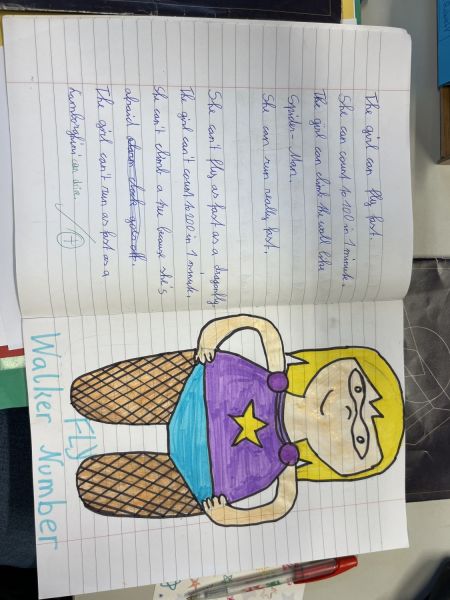 The girl can fly fast.
She can count to 100 in 1 minute.
The girl can climb the wall like
Spider-Man.
She can run really fast.
She can't fly as fast as a dragonfly.
The girl can't count to 200 in 1 minute.
She can't climb a tree because she's
afraid
The girl can't run as fast as a
Lamborghini can
FLY
Walker Number